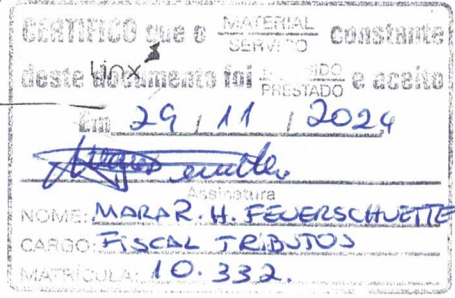 CERTIFICO que o MATERIAL constante
SERVIÇO
Linx
deste documento foi PRESTADO e aceito
Em 29 / 11 / 2024
Assinatura
NOME: MARA R. H. FEUERSCHUETTE
CARGO: FISCAL TRIBUTOS
MATRÍCULA: 10.332.